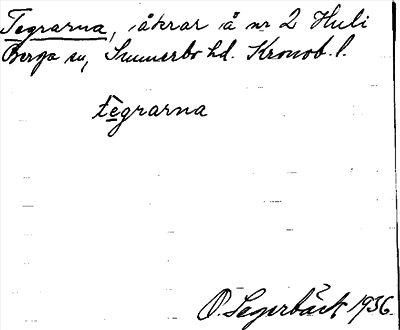 Tegrarna, åkrar å nr 2 Huli
Berga sn, Sunnerbo hd. Kronob. l.
tegrarna
O. Segerbäck 1936.